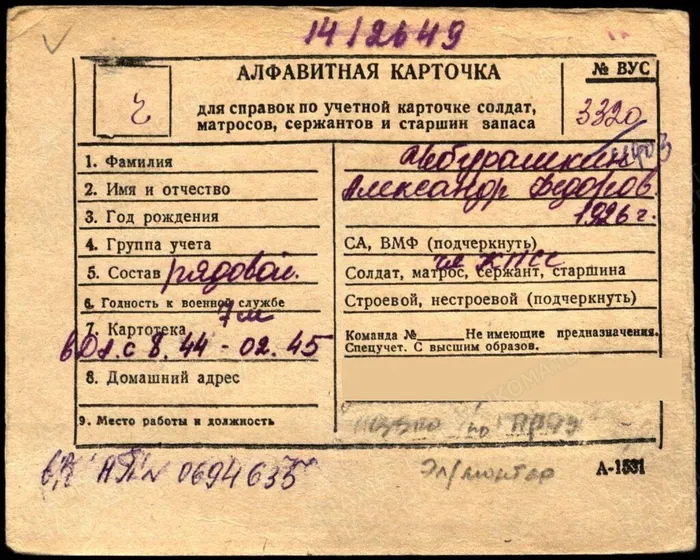 1412649
АЛФАВИТНАЯ КАРТОЧКА
№ ВУС
Ч
для справок по учетной карточке солдат,
матросов, сержантов и старшин запаса
3320
1. Фамилия Чебурашкин
2. Имя и отчество Александр Федоров.
3. Год рождения 1926 г.
4. Группа учета СА, ВМФ (подчеркнуть)
чл КПСС
5. Состав рядовой. Солдат, матрос, сержант, старшина
6. Годность к военной службе Строевой, нестроевой (подчеркнуть)
7. Картотека Команда № Не имеющие предназначения.
Спецучет. С высшим образов.
с 8.44 - 02.45
8. Домашний адрес
9. Место работы и должность
0694635
Эл/монтер
А-1531